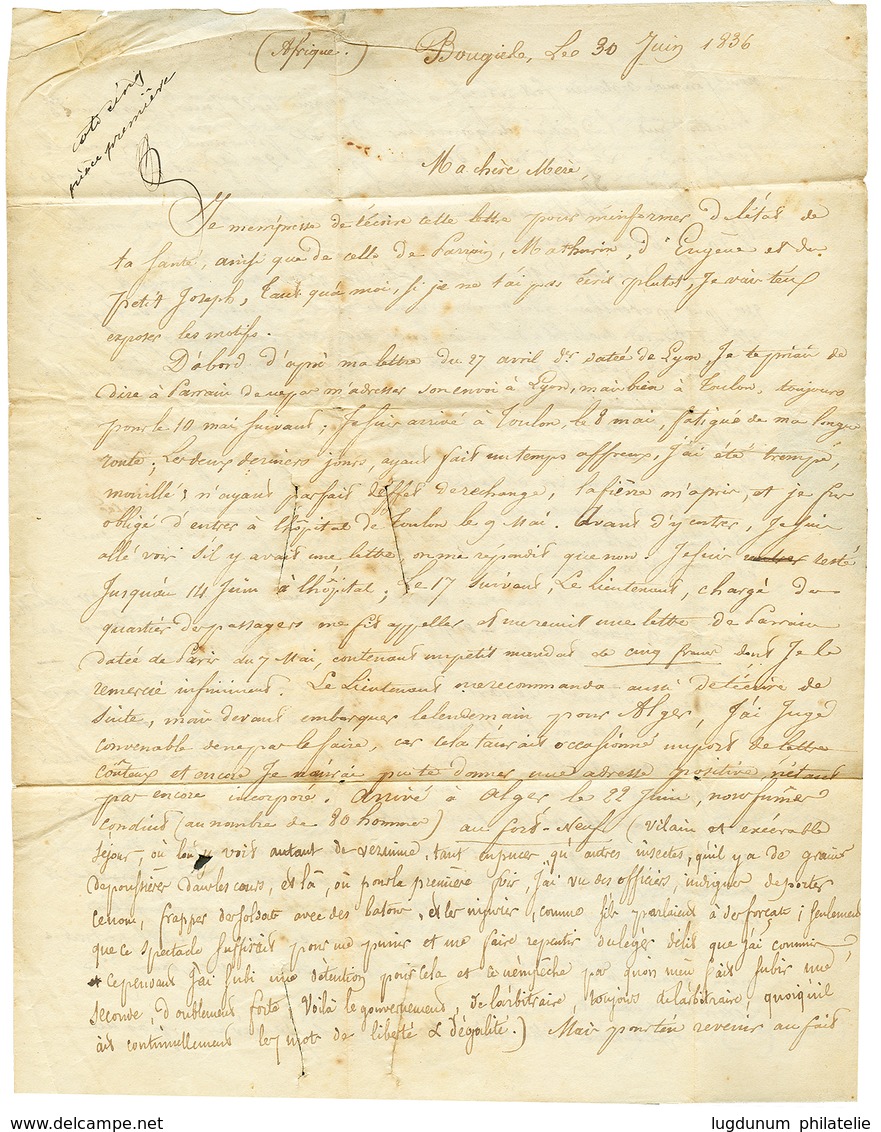 (Afrique.) Bougie, Le 30 Juin 1836
coté cinq
pièce première
Ma chère Mere,
Je m'empresse de t'écrire cette lettre pour m'informer de l'état de
ta santé, ainsi que de celle de Parrain, Mathurin, d'Eugène et du
petit Joseph, Tant qu'à moi, si je ne t'ai pas écris plutot, Je vais t'en
exposer les motifs.
D'abord d'après ma lettre du 27 avril dr. datée de Lyon, Je te priais de
dire à Parrain de ne pas m'adresser son envoi à Lyon, mais bien à Toulon, toujours
pour le 10 mai suivant; Je suis arrivé à Toulon, le 8 mai, fatigué de ma longue
route; Les deux derniers jours, ayant fait un temps affreux, j'ai été trempé,
mouillé; n'ayant pas fait d'effet de rechange, la fièvre m'a pris, et je fus
obligé d'entrer à l'hôpital de Toulon le 9 Mai. Avant d'y entrer, Je suis
allé voir s'il y avait une lettre on me répondit que non. Je suis resté
Jusqu'au 14 Juin à l'hôpital; Le 17 suivant, Le lieutenant, chargé du
quartier des passagers me fit appeller et me remit une lettre de Parrain
datée de Paris du 7 Mai, contenant un petit mandat de cinq francs dont Je le
remercie infiniment. Le Lieutenant me recommanda aussi de t'écrire de
suite, mais devant embarquer le lendemain pour Alger, J'ai Jugé
convenable de ne pas le faire, car cela t'aurait occasionné un port de lettre
coûteux et encore Je n'aurais pu te donner une adresse positive, n'étant
pas encore incorporé. Arrivé à Alger, le 22 Juin, nous fûmes
conduits (au nombre de 80 hommes) au fort-Neuf (Vilain et exécrable
séjour, où l'on y voit autant de vermine, tant en puces qu'autres insectes, qu'il y a de grains
de poussière dans les cours, et là, où pour la première fois, J'ai vu des officiers, indignes de porter
ce nom, frapper des soldats avec des batons, et les injurier, comme s'ils parlaient à des forçats; seulement
que ce spectacle suffirait pour me punir et me faire repentir du léger délit que j'ai commis
cependant J'ai subi une détention pour cela et ce n'empêche pas qu'on m'en fait subir une
seconde, doublement forte Voilà le gouvernement, de l'arbitraire, toujours de l'arbitraire, quoiqu'il
ait continuellement les mots de liberté & d'égalité.) Mais pour t'en revenir au fait
delcampe.net
lugdunum philatelie